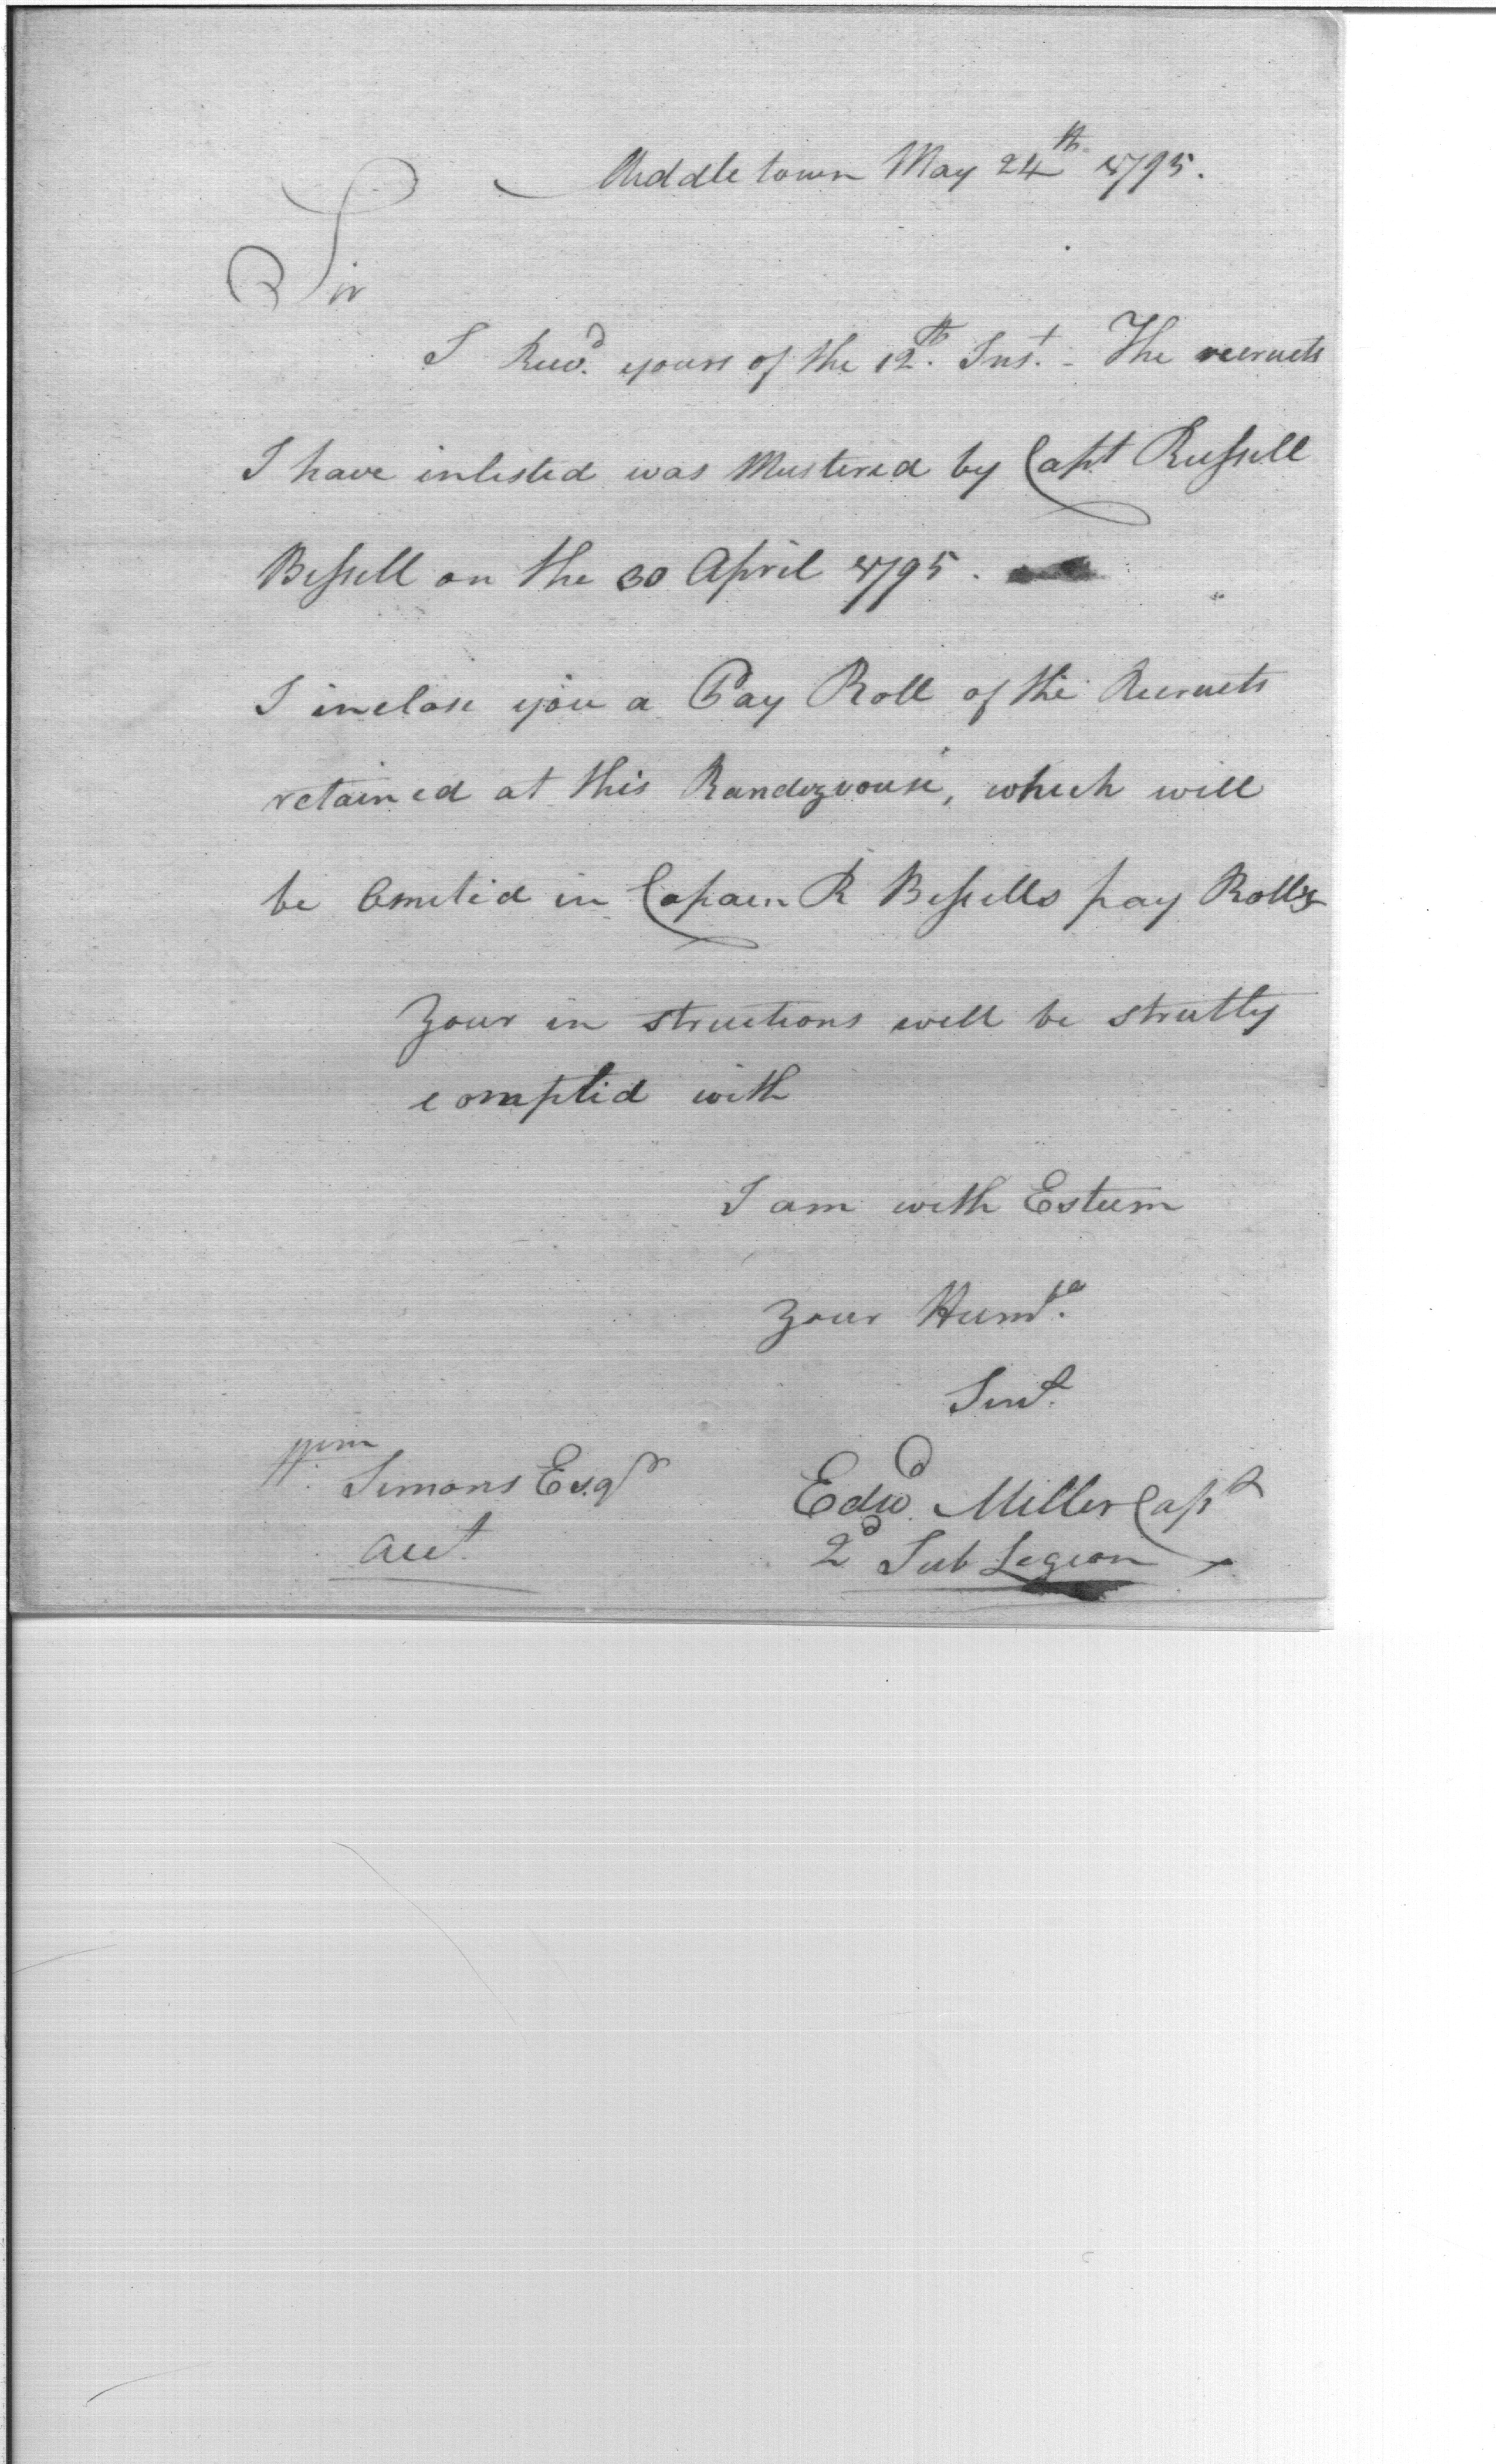 Middletown May 24th 1795.
Sir
I Recvd. yours of the 12th. Inst. - The recruits
I have inlisted was Mustered by Capt Russell
Bissell on the 30 April 1795.
I inclose you a Pay Roll of the Recruits
retained at this Randezvouse, which will
be Ometed in Capain R Bissells pay Rolls
Your in structions will be strictly
complied with
I am with Esteem
Your Humbe.
Servt.
Wm. Simons Esqr
Acct.
Edwd. Miller Capt
2d Sub Legion